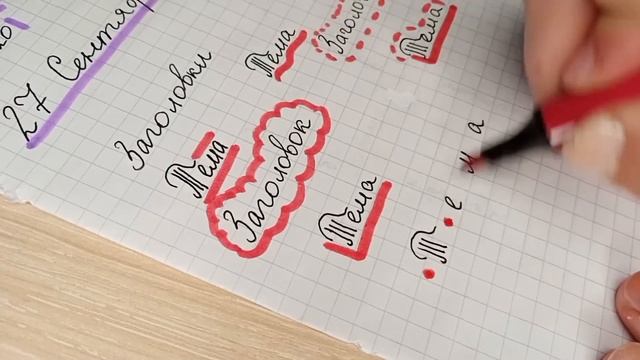 27 Сентя
Заголовки
Тема
Заголо
Тема
Тема
Заголовок
Тема
Т е м а